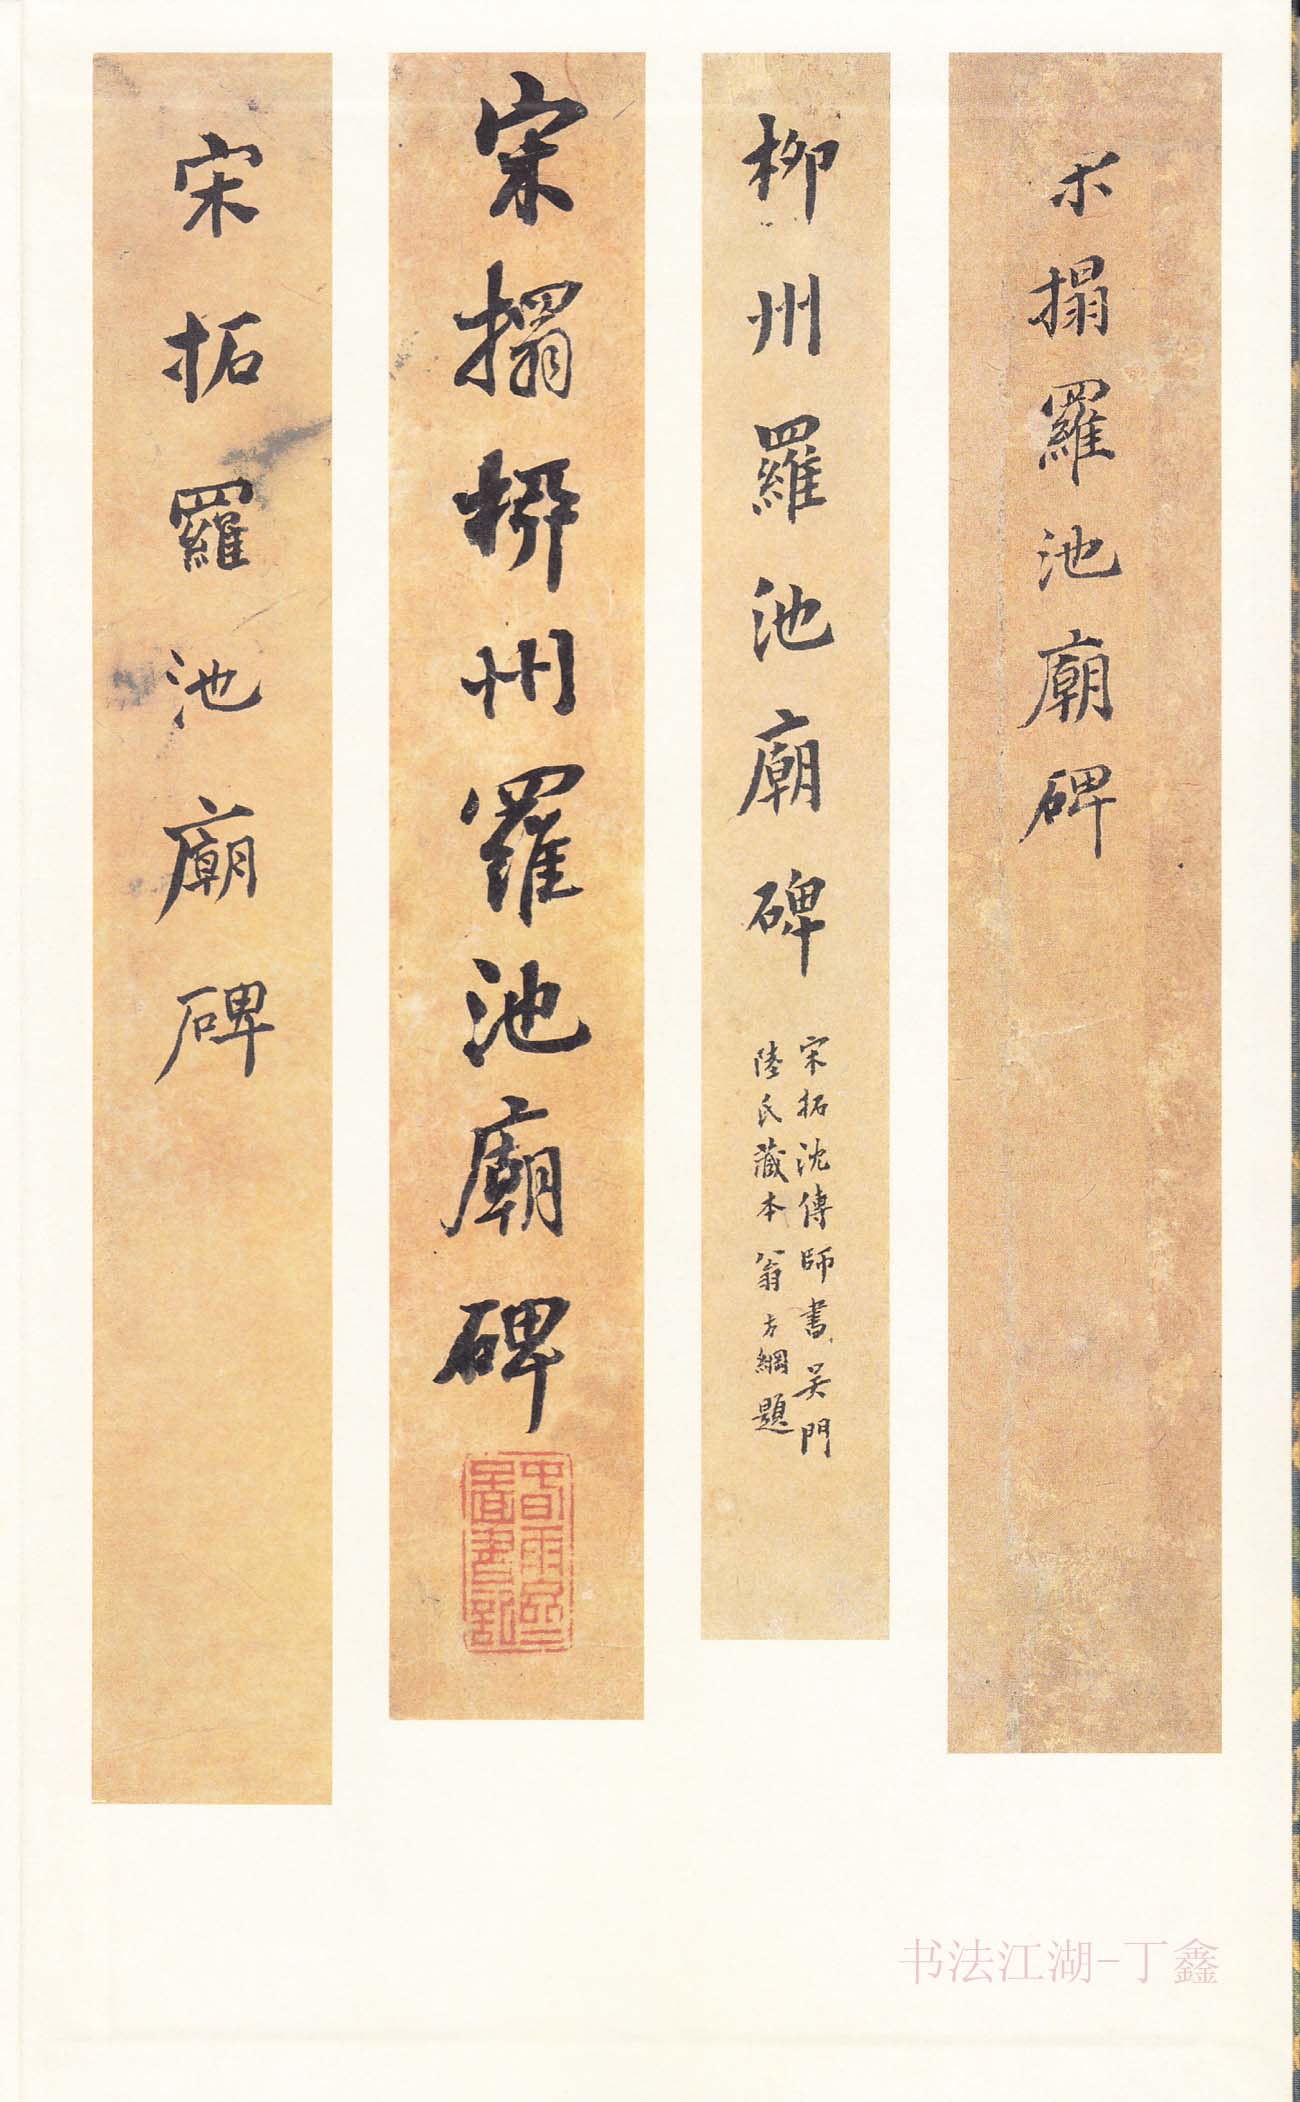 宋搨羅池廟碑
柳州羅池廟碑
宋拓沈傳師書吳門
陸氏藏本翁方綱題
宋搨柳州羅池廟碑
宋拓羅池廟碑
书法江湖-丁鑫